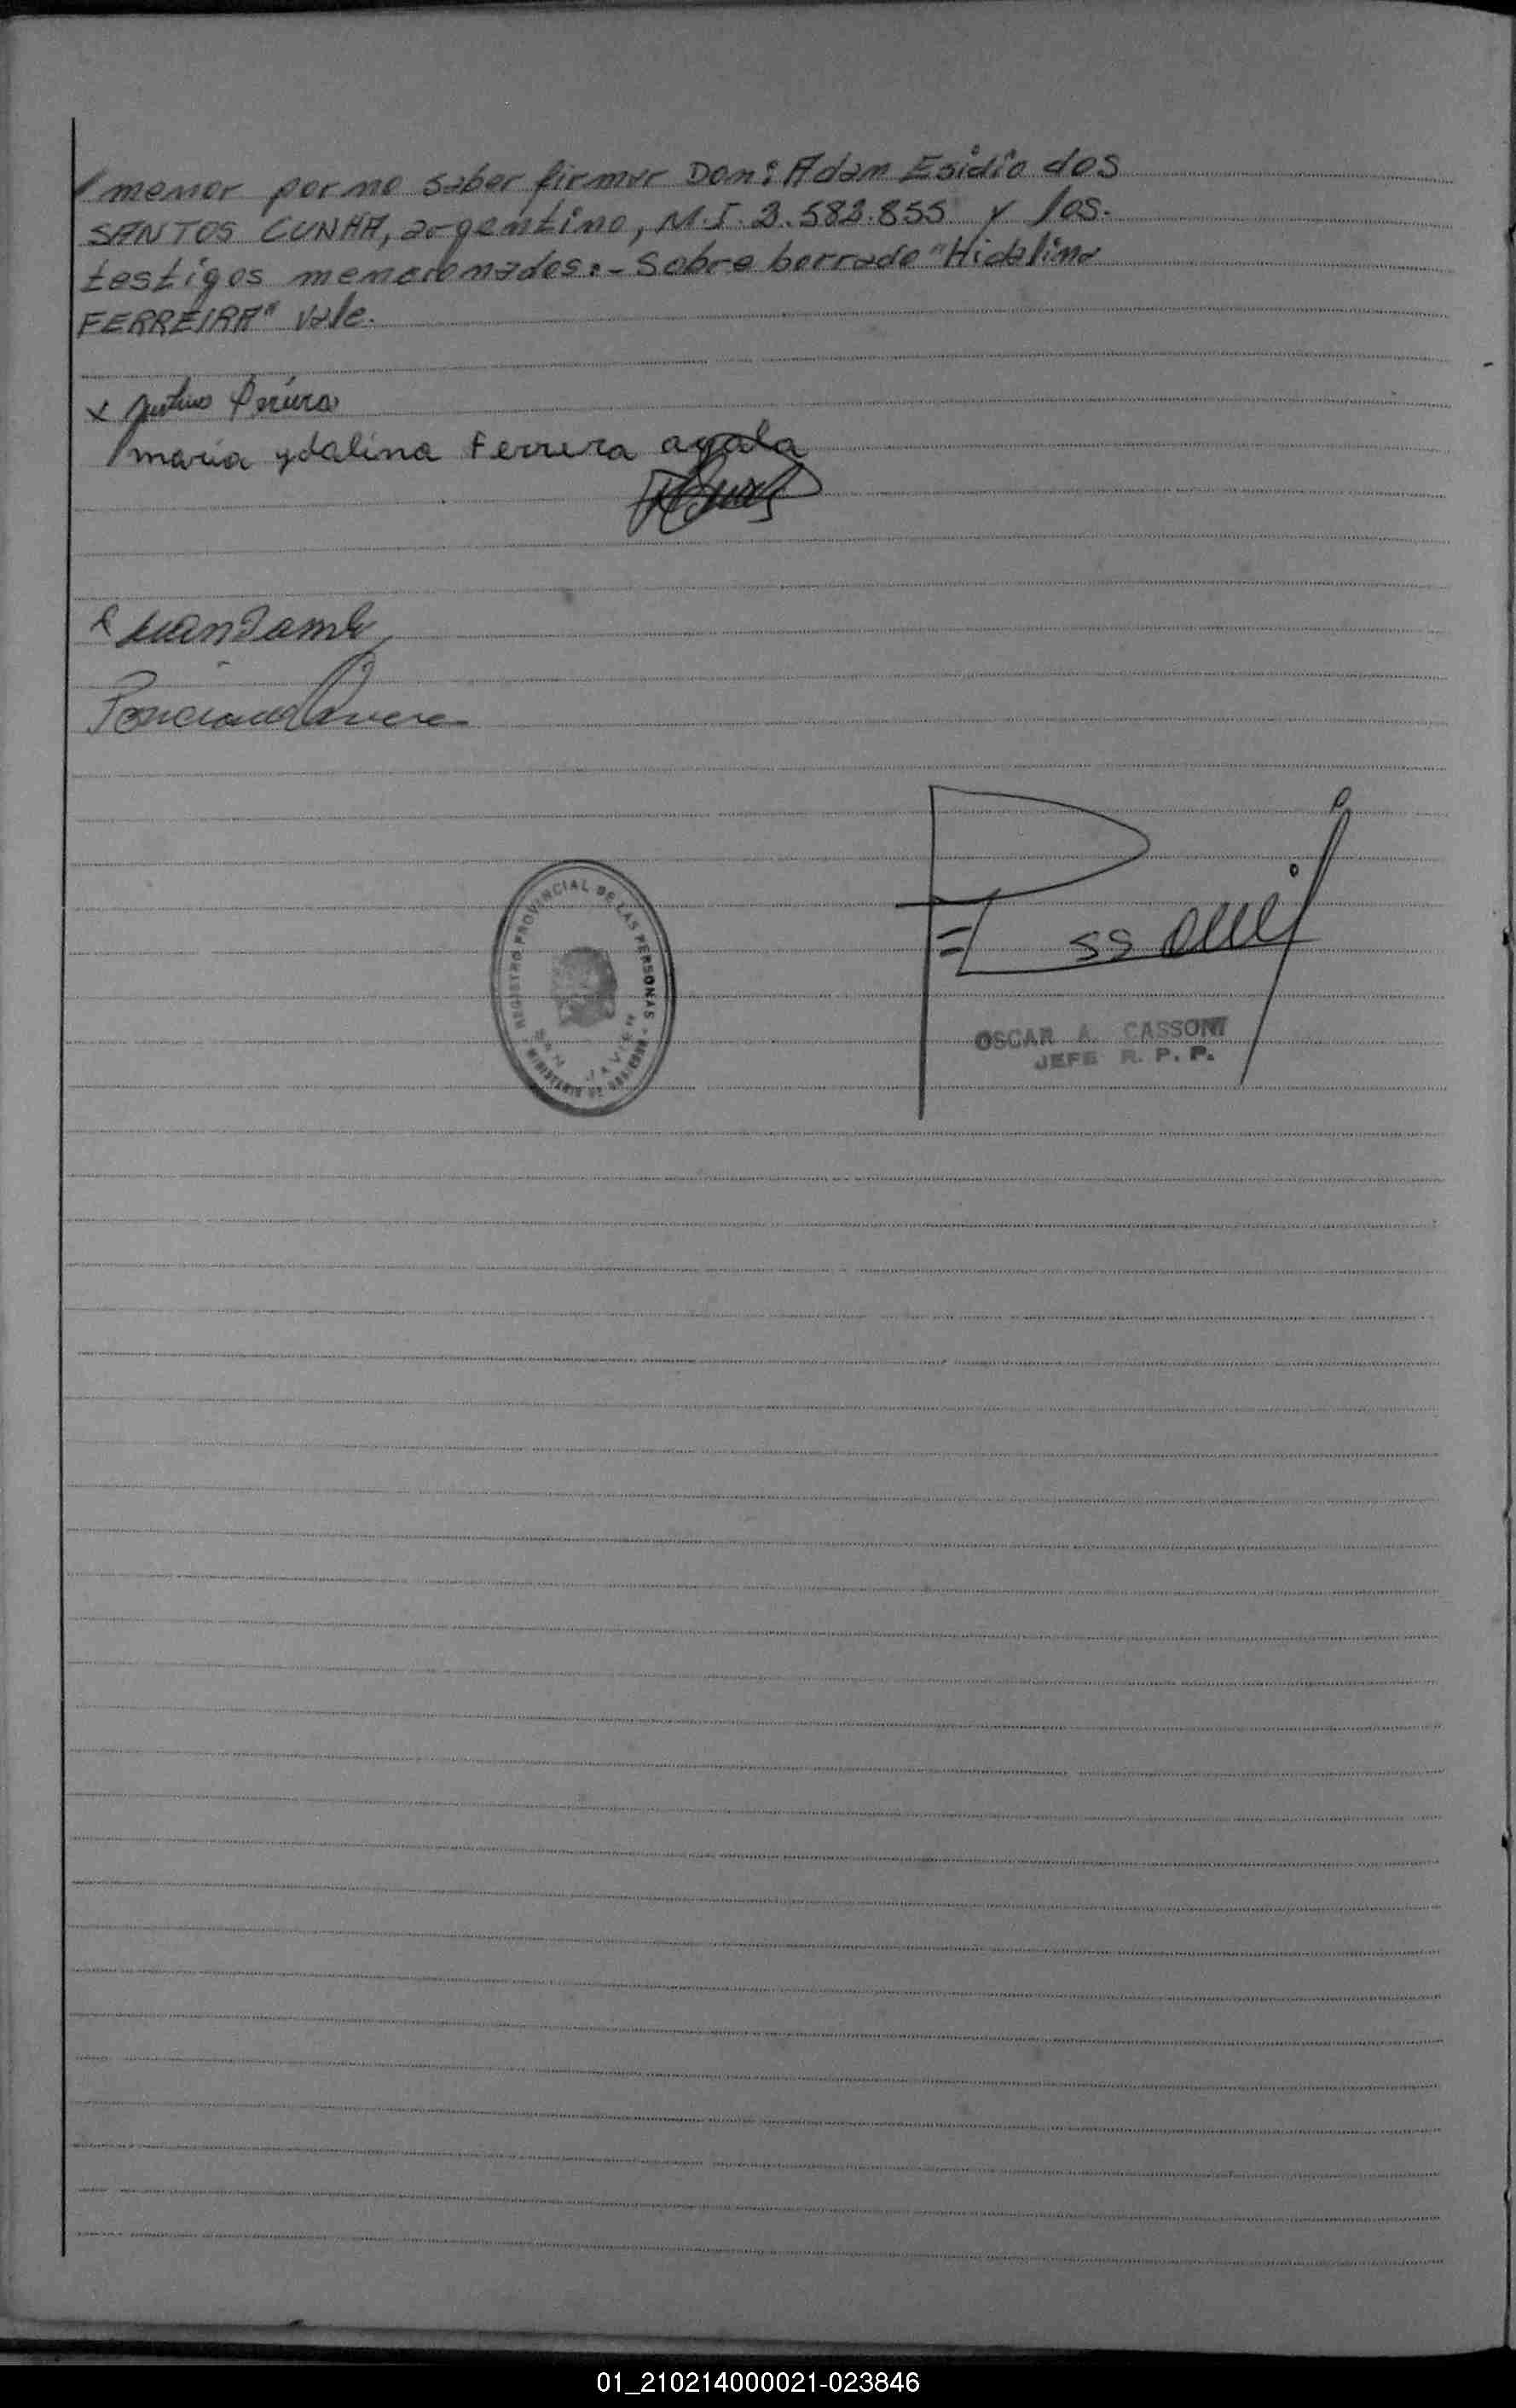 menor por no saber firmar Don: Adam Esidio dos
SANTOS CUNHA, argentino, M.I. 3.583.855 y los.
testigos mencionados.- Sobre borrado "Hidalina
FERREIRA" Vale.
x Pereira
maria ydalina Ferreira ayala
REGISTRO PROVINCIAL DE LAS PERSONAS
SAN JAVIER
MINISTERIO DE GOBIERNO
OSCAR A. CASSONI
JEFE R. P. P.
01_210214000021-023846